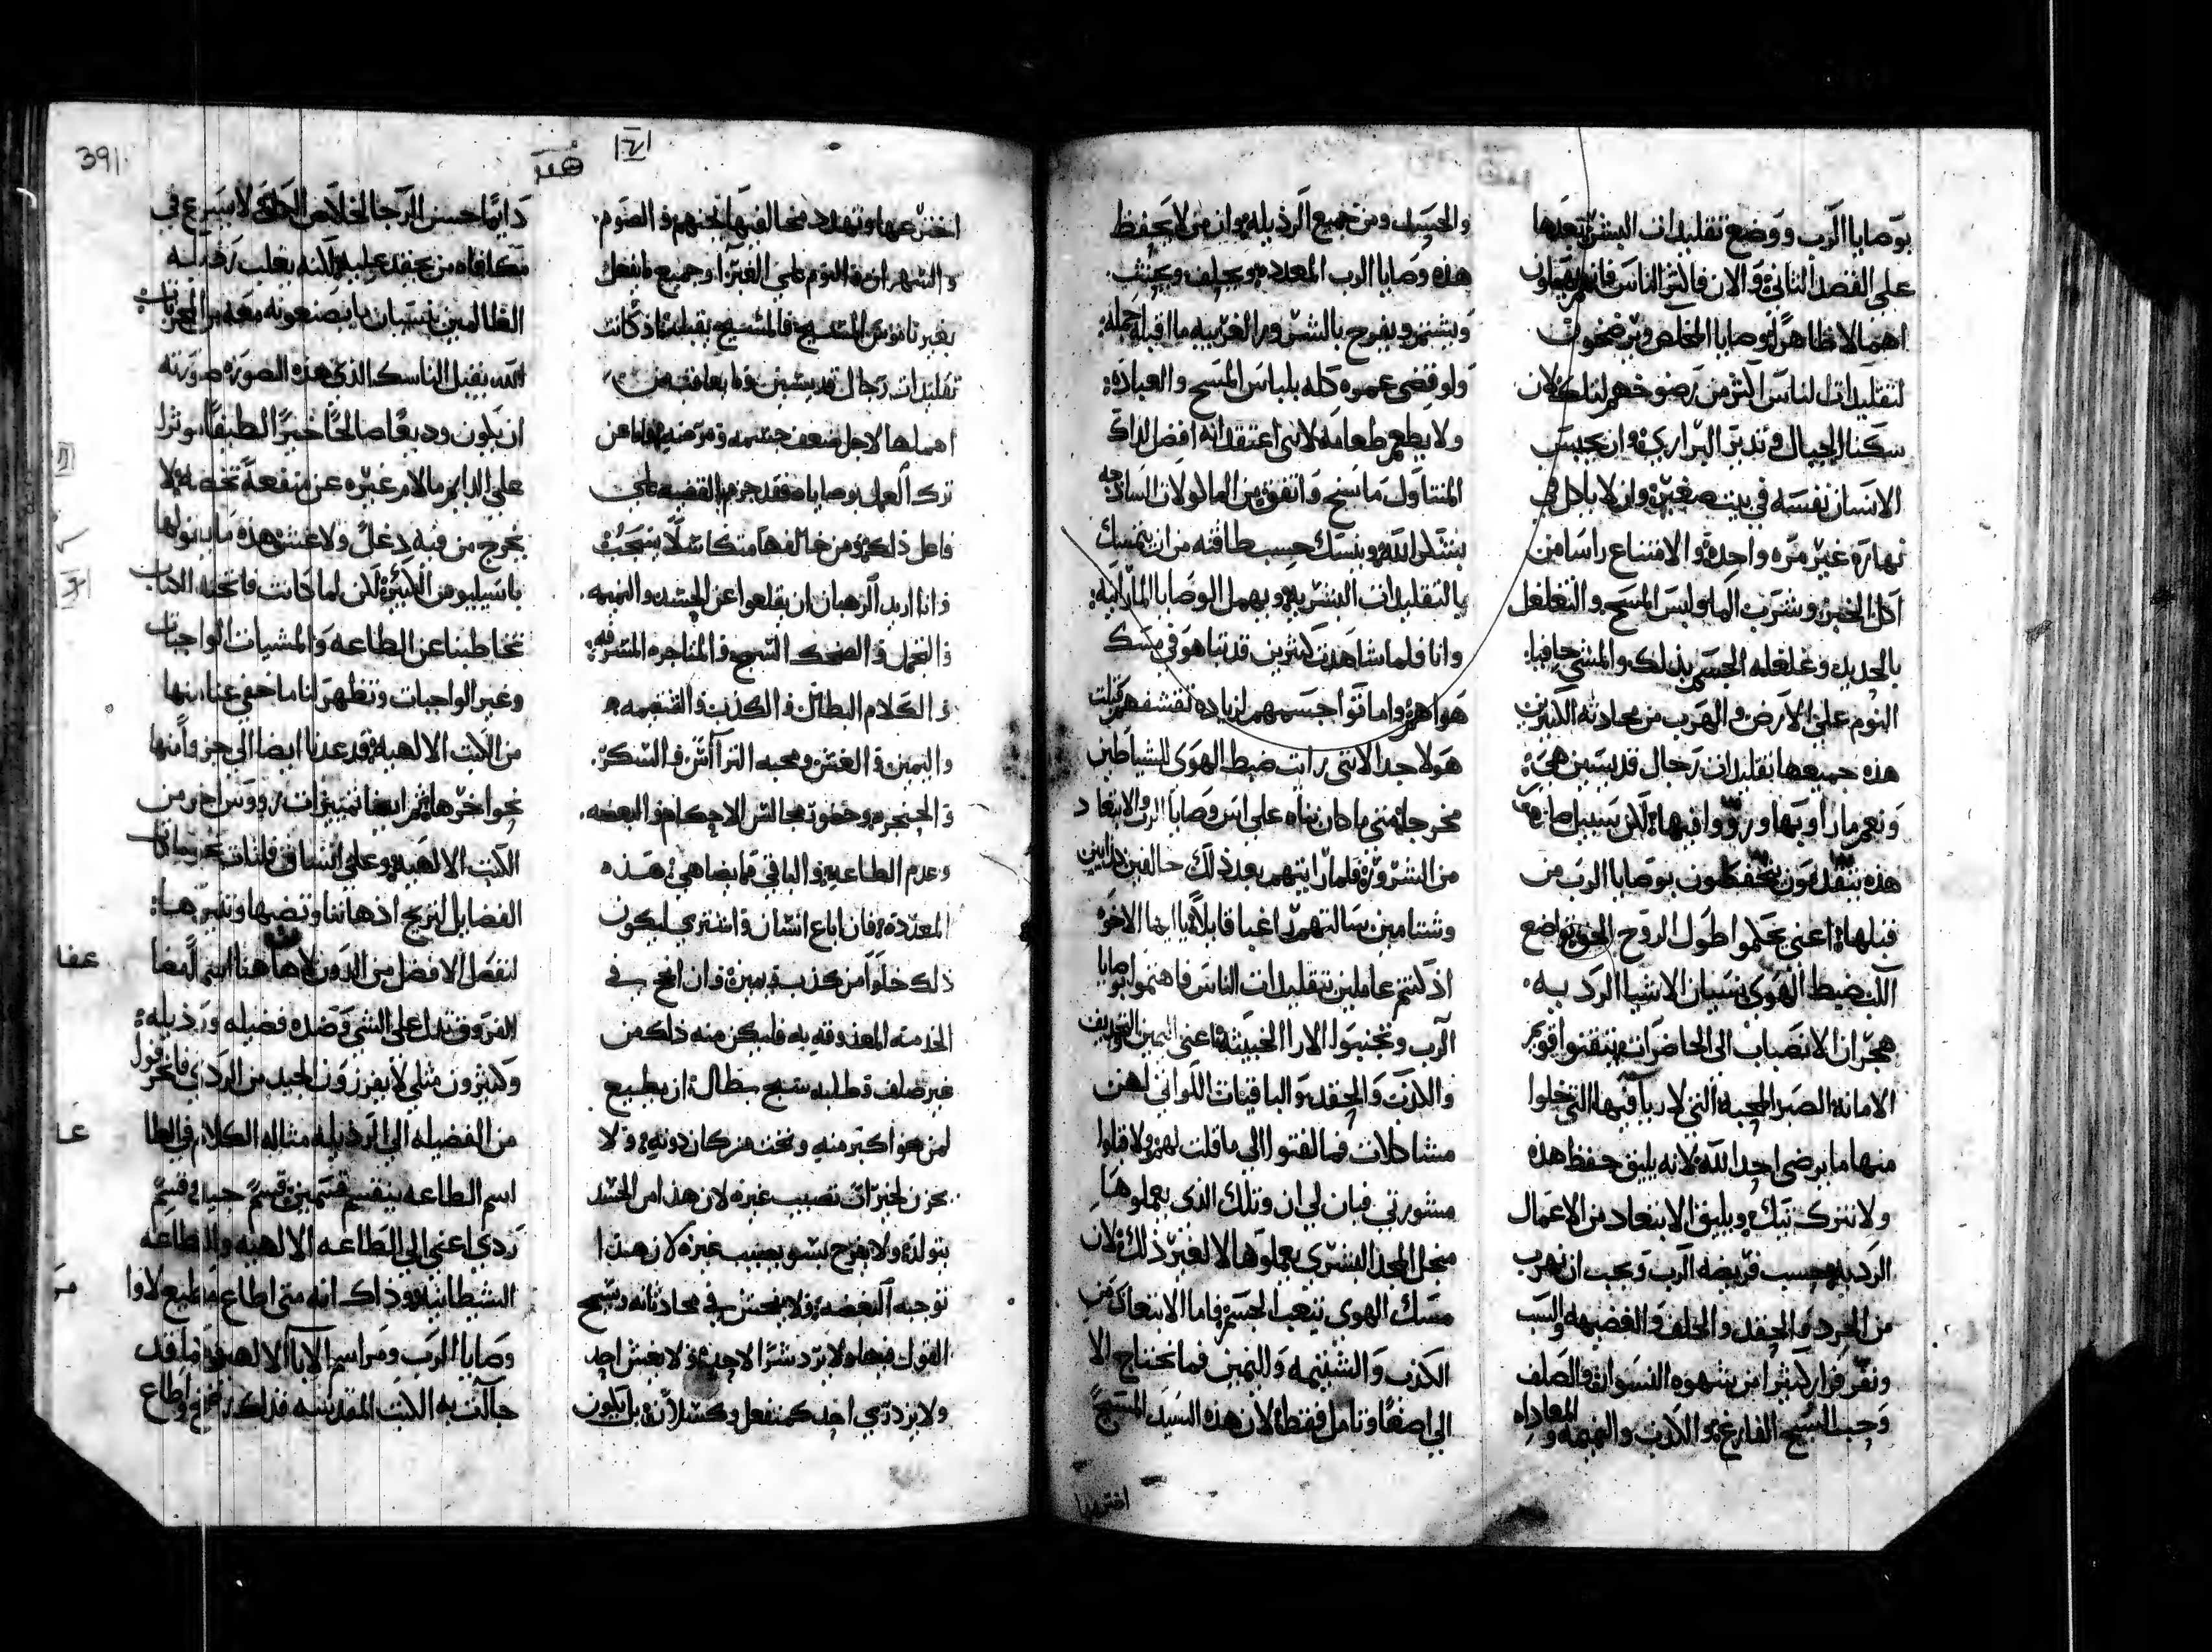 بوصايا الرب ووضع تقليدات البشر بعدها
على الفصل الثاني والان فاكثر الناس فانهم يقبلون
اهمالا ظاهرا بوصايا المخلص ويرضخون
لتقليدات الناس اكثر من رضوخهم لتلك لان
سكنا الجبال وتدبر البراري وان يحبس
الانسان نفسه في بيت صغير وان لا ياكل في
نهاره غير مره واحدة والامتناع راسا من
اكل الخبز وشرب الما ولبس المسح والتغلغل
بالحديد وغلغلة الجسم بذلك والمشي حافيا
النوم على الارض والهرب من محادثة الكثيرين
هذه جميعها تقليدات رجال قديسين هي
ونعم ما راوا بها ورووا فيها لكن سبيل صانعي
هذه يتقدمون يتحفظون بوصايا الرب من
قبلها اعني يحكموا طول الروح الخوف تواضع
اللب ضبط الهوى نسيان الاشيا الرديه
هجران الانصباب الى الحاضرات يتقنوا قويم
الامانة الصبر المحبة التي لا ريا فيها التي خلوا
منها ما يرضى احدا الله لانه يليق حفظ هذه
ولا نترك تيك ويليق الابتعاد من الاعمال
الرديه بحسب فريضه الرب ويجب ان نهرب
من الحرد والحقد والحلف والغضبه والسب
ونفر فرارا كثيرا من شهوه النسوان والصلف
وحب السبح الفارغ والكذب والنميمه والمعاداه
والحسد ومن جميع الرذيله وان من لا يحفظ
هذه وصايا الرب المعدده ويحلف ويحنث
ويشتم ويفرح بالشرور الغريبه ما اقبله جمله
ولو قضى عمره كله بلباس المسح والعباده
ولا يطعم طعاما لانني اعتقد انه افضل لذاك
المتناول ما سنح واتفق من الماكولات الساذجه
يشكر الله ويتنسك حسب طاقته من ان يتمسك
بالتقليدات البشريه ويهمل الوصايا الالهيه
وانا فلما شاهدت كثيرين قد تباهوا في مسك
هواهم واماتوا اجسمهم لزيادة تقشفهم قبلت
هولا جدا لانني رايت ضبط الهوى للشياطين
مخرجا متى ما كان بناه على اس وصايا الرب والابتعاد
من الشرور فلما رايتهم بعد ذلك حالفين كذابين
وشتامين سالتهم راغبا قابلا يا ايها الاخوه
اذ كنتم عاملين بتقليدات الناس فاهتموا بوصايا
الرب وتجنبوا الارا الخبيثه اعني اليمين التجديف
والكذب والحقد والباقيات اللواتي لهن
مشاكلات فما التفتوا الى ما قلت لهم ولا قبلوا
مشورتي فبان لي ان وتلك الذي يعملوها
منجل المجد البشري يعملوها لا لغير ذلك لان
مسك الهوى يتعب الجسم فاما الابتعاد من
الكذب والشتيمه واليمين فما يحتاج الا
الى اصغا وتامل فقط لان هذه السيد المسيح
احترنا
هند
391
اختزعها وتهدد مخالفيها بجهنم والصوم
والسهر ان والنوم على الغبرا وجميع ما يفعل
بغير ناموس المسيح فالمسيح يقبله اذ كانت
تقليدات رجال قديسين وما يعاقب من
اهملها لاجل ضعف جسمه ومرضه فاما عن
ترك العمل بوصاياه فقد جزم القضيه على
فاعل ذلك ومن خالفها متكاسلا يسحب
وانا اريد الرهبان ان يقلعوا عن الحسد والنميمه
والتجمل والضحك السمج والمتاجره المسرفه
والكلام البطال والكذب والشتيمه
واليمين والغش ومحبه التراآش والسكر
والحنجره وحضور مجالس الاحكام والبغضه
وعدم الطاعه والباقي ما يضاهي هذه
المعدده فان اباع انسان واشتري ليكون
ذلك خلوا من كذب ويمين وان افلح في
الخدمه المعذوقه به فليكن منه ذلك من
غير صلف وطلب سبح بطال ان يطيع
لمن هو اكبر منه ونحن من كان دونه ولا
يحزن لخيرات تصيب غيره لان هذا من الحسد
يتولد ولا يفرح بسو يصيب غيره لان هذا
توجبه البغضه ولا يفحش في محادثاته وسمج
القول فيها ولا يرد شرا لاحد ولا يغش احد
ولا يزدري احد كمنفعل وكسلان بل يكون
دايما حسن الرجا لخلاص الحق لا يسرع في
مكافاه من يحقد عليه لكنه يغلب رذيلة
الظالمين بنسيان ما يصنعونه معه من المحزنات
الله يقبل الناسك الذي هذه الصوره صورته
ان يكون وديعا صالحا خيرا لطيفا موثرا
على الدايم ما لامر غيره عن منفعة تخصه لا
يخرج من فيه دغل ولا غش هذه ما بينوها
باسيليو من الكبير لكن لما كانت فاتحة الكتاب
تخاطبنا عن الطاعه والمشيات الواجبات
وغير الواجبات وتظهر لنا ما خفي عنا منها
من الكتب الالهيه قد عدنا ايضا الى جزو امنها
نحو اخرها ثم ايضا تمييزات رووس اخر من
الكتب الالهيه وعلى انشا في
الفضايل لتريح اذهاننا وتضيها وتنيرها
لنفصل الافضل من الدون لان هاهنا اسم لمضا
الفروق تدل على الشي وضده فضيله ورذيله
وكثيرون مثلي لا يفرزون الجيد من الردي فانحرفوا
من الفضيله الى الرذيله مثال الكلام في الطا
اسم الطاعه ينقسم قسمين قسم جيد في قسم
ردي اعني الى الطاعه الالهيه والطاعه
الشيطانيه وذاك انه متى اطاع مطيع لاوا
وصايا الرب ومراسم الابا الالهيين ما قد
جاات به الكتب المقدسه فذاك واطاع
عفا
عا
مر